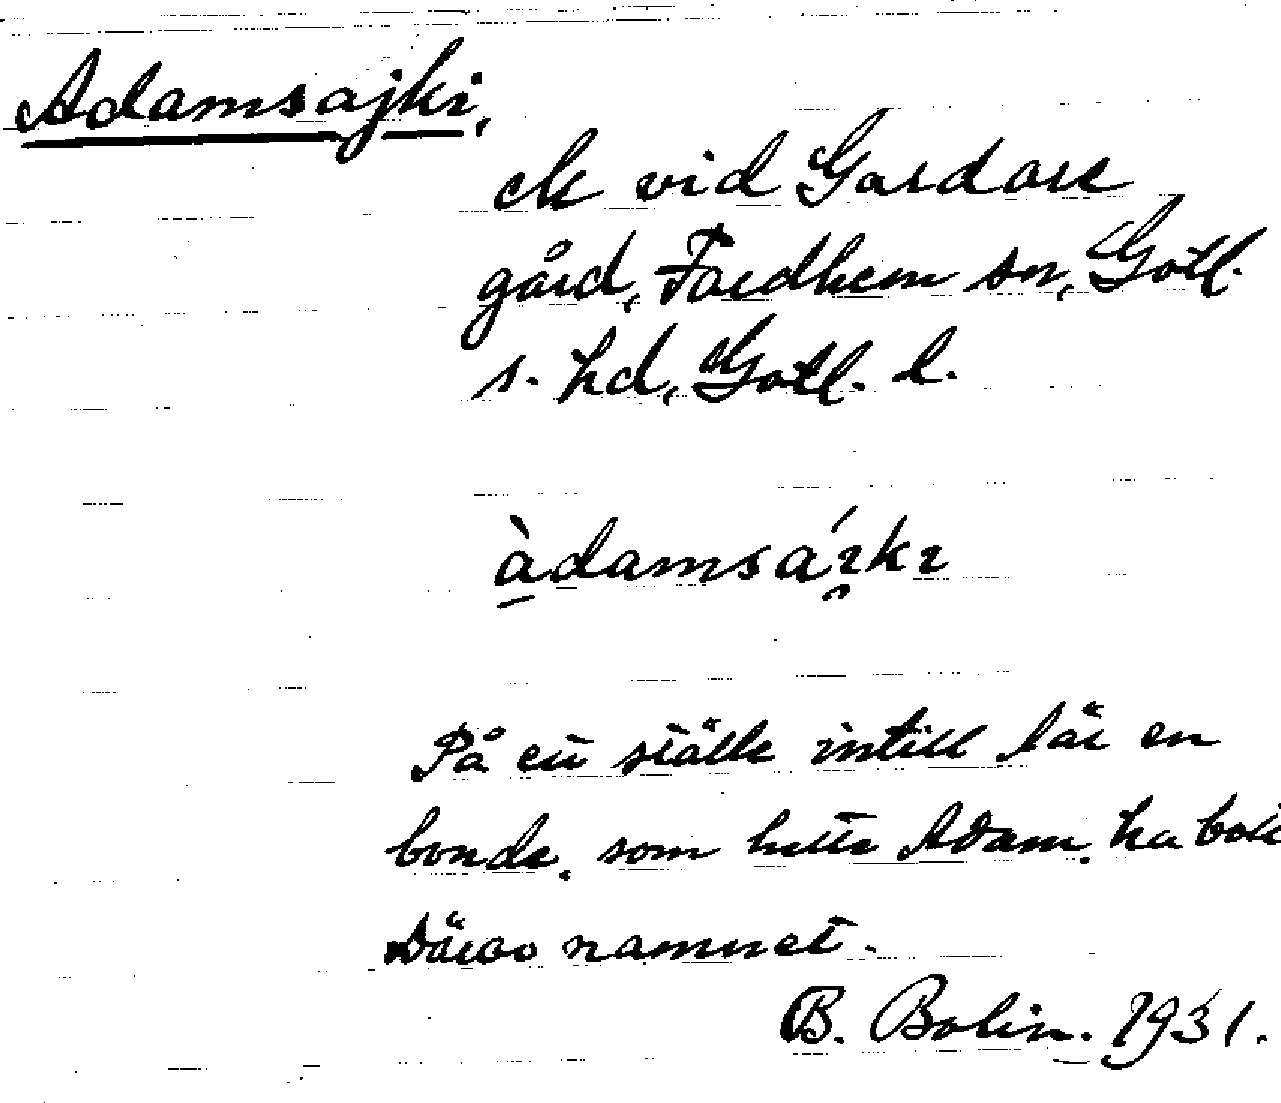 Adamsajki,
ek vid Gardare
gård, Fardhem sn, Gotl.
s. hd, Gotl. l.
àdamsáıkı
På ett ställe intill lär en
bonde, som hette Adam, ha bott
Därav namnet.
B. Bolin. 1931.